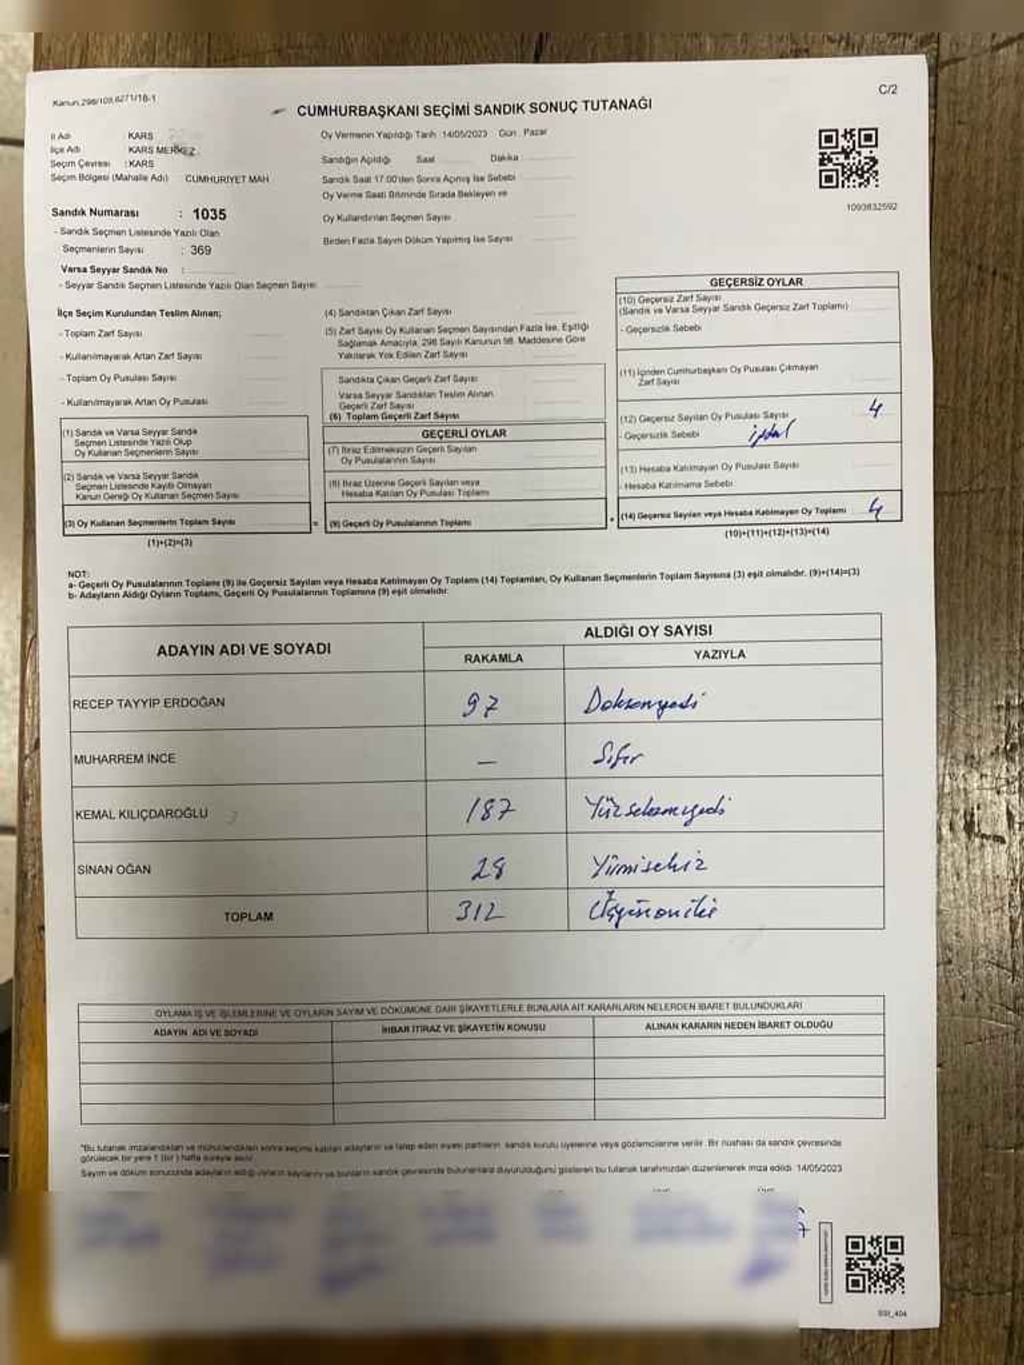 Kanun.298/109,6271/16-1
C/2
CUMHURBAŞKANI SEÇİMİ SANDIK SONUÇ TUTANAĞI
İl Adı KARS
İlçe Adı KARS MERKEZ
Seçim Çevresi : KARS
Seçim Bölgesi (Mahalle Adı) CUMHURİYET MAH
Sandık Numarası : 1035
- Sandık Seçmen Listesinde Yazılı Olan
Seçmenlerin Sayısı : 369
Varsa Seyyar Sandık No :
- Seyyar Sandık Seçmen Listesinde Yazılı Olan Seçmen Sayısı:
Oy Vermenin Yapıldığı Tarih :14/05/2023 Gün : Pazar
Sandığın Açıldığı Saat Dakika
Sandık Saat 17.00'den Sonra Açılmış İse Sebebi
Oy Verme Saati Bitiminde Sırada Bekleyen ve
Oy Kullandırılan Seçmen Sayısı
Birden Fazla Sayım Döküm Yapılmış İse Sayısı
1093832592
İlçe Seçim Kurulundan Teslim Alınan;
- Toplam Zarf Sayısı
- Kullanılmayarak Artan Zarf Sayısı
- Toplam Oy Pusulası Sayısı
- Kullanılmayarak Artan Oy Pusulası
(1) Sandık ve Varsa Seyyar Sandık
Seçmen Listesinde Yazılı Olup
Oy Kullanan Seçmenlerin Sayısı
(2) Sandık ve Varsa Seyyar Sandık
Seçmen Listesinde Kayıtlı Olmayan
Kanun Gereği Oy Kullanan Seçmen Sayısı
(3) Oy Kullanan Seçmenlerin Toplam Sayısı
(1)+(2)=(3)
(4) Sandıktan Çıkan Zarf Sayısı
(5) Zarf Sayısı Oy Kullanan Seçmen Sayısından Fazla İse, Eşitliği
Sağlamak Amacıyla, 298 Sayılı Kanunun 98. Maddesine Göre
Yakılarak Yok Edilen Zarf Sayısı
Sandıkta Çıkan Geçerli Zarf Sayısı
Varsa Seyyar Sandıktan Teslim Alınan
Geçerli Zarf Sayısı
(6) Toplam Geçerli Zarf Sayısı
GEÇERLİ OYLAR
(7) İtiraz Edilmeksizin Geçerli Sayılan
Oy Pusulalarının Sayısı
(8) İtiraz Üzerine Geçerli Sayılan veya
Hesaba Katılan Oy Pusulası Toplamı
= (9) Geçerli Oy Pusulalarının Toplamı
GEÇERSİZ OYLAR
(10) Geçersiz Zarf Sayısı
(Sandık ve Varsa Seyyar Sandık Geçersiz Zarf Toplamı)
- Geçersizlik Sebebi
(11) İçinden Cumhurbaşkanı Oy Pusulası Çıkmayan
Zarf Sayısı
(12) Geçersiz Sayılan Oy Pusulası Sayısı 4
- Geçersizlik Sebebi iptal
(13) Hesaba Katılmayan Oy Pusulası Sayısı
- Hesaba Katılmama Sebebi
+ (14) Geçersiz Sayılan veya Hesaba Katılmayan Oy Toplamı 4
(10)+(11)+(12)+(13)=(14)
NOT:
a- Geçerli Oy Pusulalarının Toplamı (9) ile Geçersiz Sayılan veya Hesaba Katılmayan Oy Toplamı (14) Toplamları, Oy Kullanan Seçmenlerin Toplam Sayısına (3) eşit olmalıdır. (9)+(14)=(3)
b- Adayların Aldığı Oyların Toplamı, Geçerli Oy Pusulalarının Toplamına (9) eşit olmalıdır.
ADAYIN ADI VE SOYADI
ALDIĞI OY SAYISI
RAKAMLA YAZIYLA
RECEP TAYYİP ERDOĞAN 97 Doksanyedi
MUHARREM İNCE — Sıfır
KEMAL KILIÇDAROĞLU 187 Yüzseksenyedi
SİNAN OĞAN 28 Yirmisekiz
TOPLAM 312 Üçyüzoniki
OYLAMA İŞ VE İŞLEMLERİNE VE OYLARIN SAYIM VE DÖKÜMÜNE DAİR ŞİKAYETLERLE BUNLARA AİT KARARLARIN NELERDEN İBARET BULUNDUKLARI
ADAYIN ADI VE SOYADI İHBAR İTİRAZ VE ŞİKAYETİN KONUSU ALINAN KARARIN NEDEN İBARET OLDUĞU
"Bu tutanak imzalandıktan ve mühürlendikten sonra seçime katılan adayların ve talep eden siyasi partilerin sandık kurulu üyelerine veya gözlemcilerine verilir. Bir nüshası da sandık çevresinde
görülecek bir yere 1 (bir) hafta süreyle asılır.
Sayım ve döküm sonucunda adayların aldığı oyların sayılarını ve bunların sandık çevresinde bulunanlara duyurulduğunu gösteren bu tutanak tarafımızdan düzenlenerek imza edildi. 14/05/2023
SSI_404